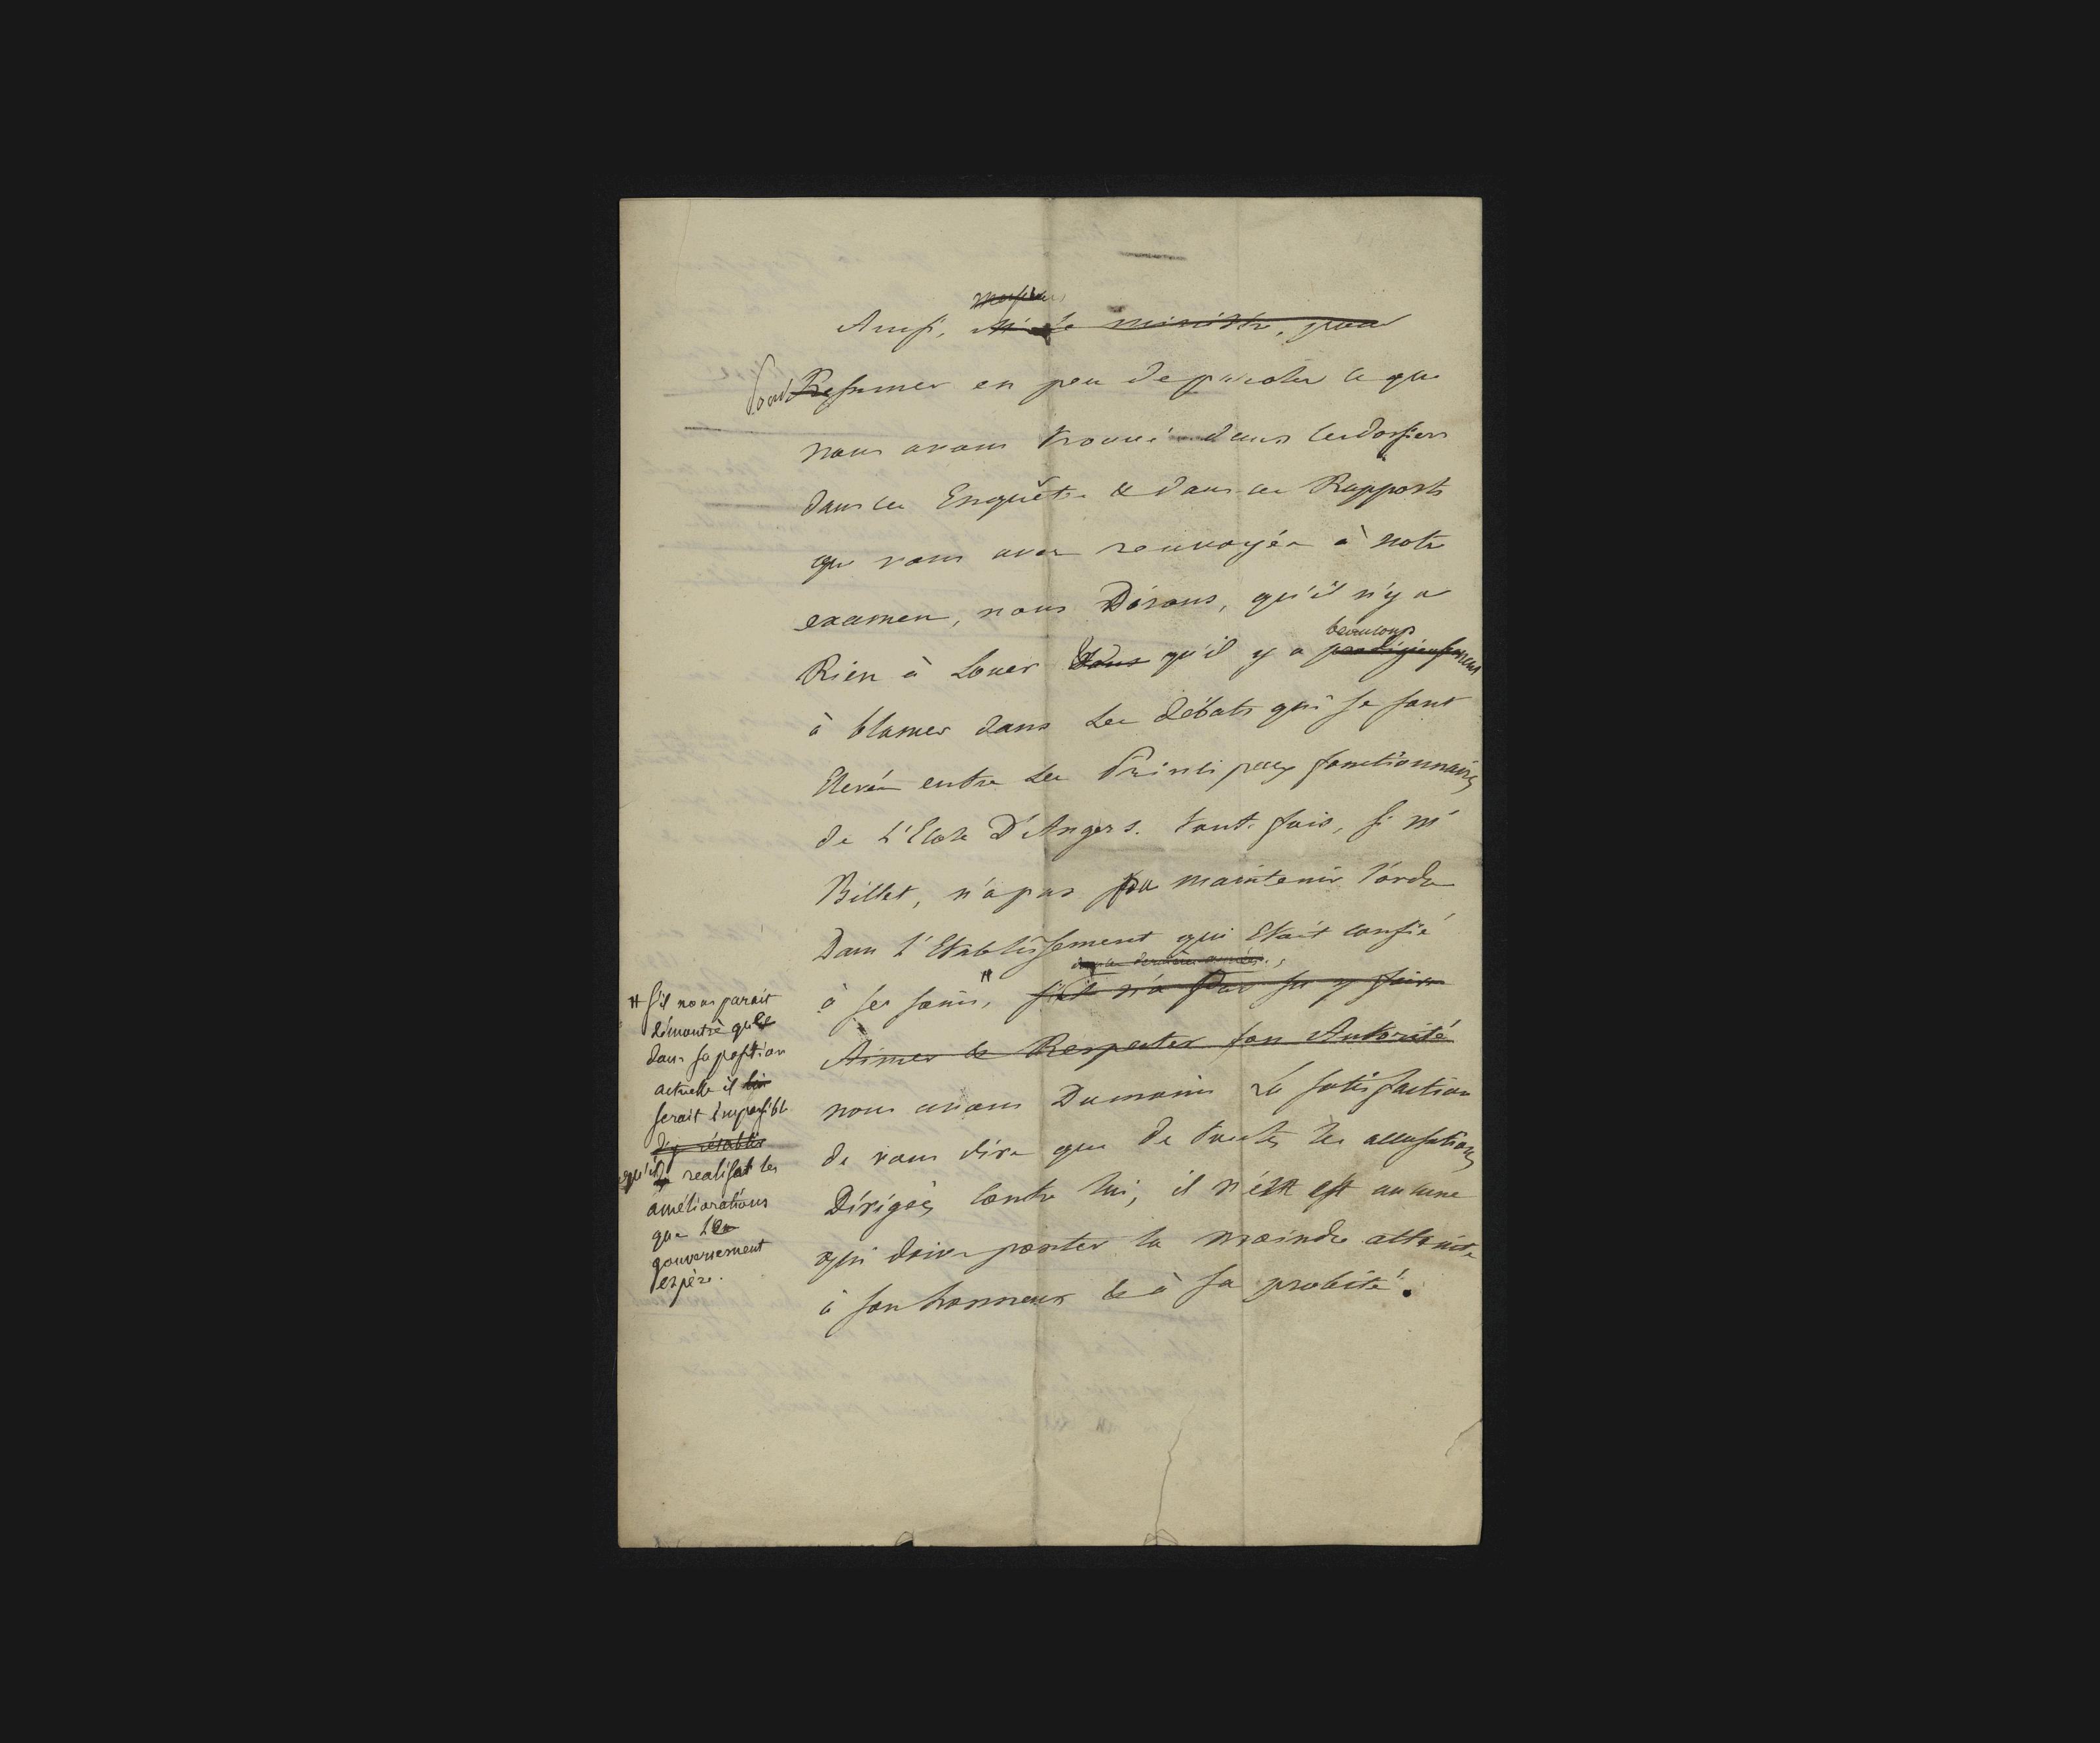 messieurs
Ainsi, Mr le ministre, pour
Pour Resumer en peu de paroles ce que
nous avons trouvé dans les dossiers
dans les Enquêtes & dans les Rapports
que vous avez renvoyées à notre
examen, nous Disons, qu'il n'y a
beaucoup
Rien à Louer & qu'il y a prodigieusement
à blamer dans Les débats qui se sont
Elevés entre Les Principaux fonctionnaires
de L'Ecole D'Angers. tout-fois, si mr
Billet, n'a pas pu maintenir l'ordre
Dans l'Etablissement qui Etait confié
dernières années,
à ses soins, # s'il n'a pas su y faire
Aimer & Respecter son Autorité
nous avons Du moins La satisfaction
de vous dire que de toutes les accusations
Dirigées Contre lui, il n'est est aucune
qui doive porter la moindre atteinte
à son honneur & à sa probité.
# s'il nous parait
démontré que
dans sa position
actuelle il lui
serait impossible
d'y rétablir
qu'il realisat les
améliorations
que Le
gouvernement
espère.